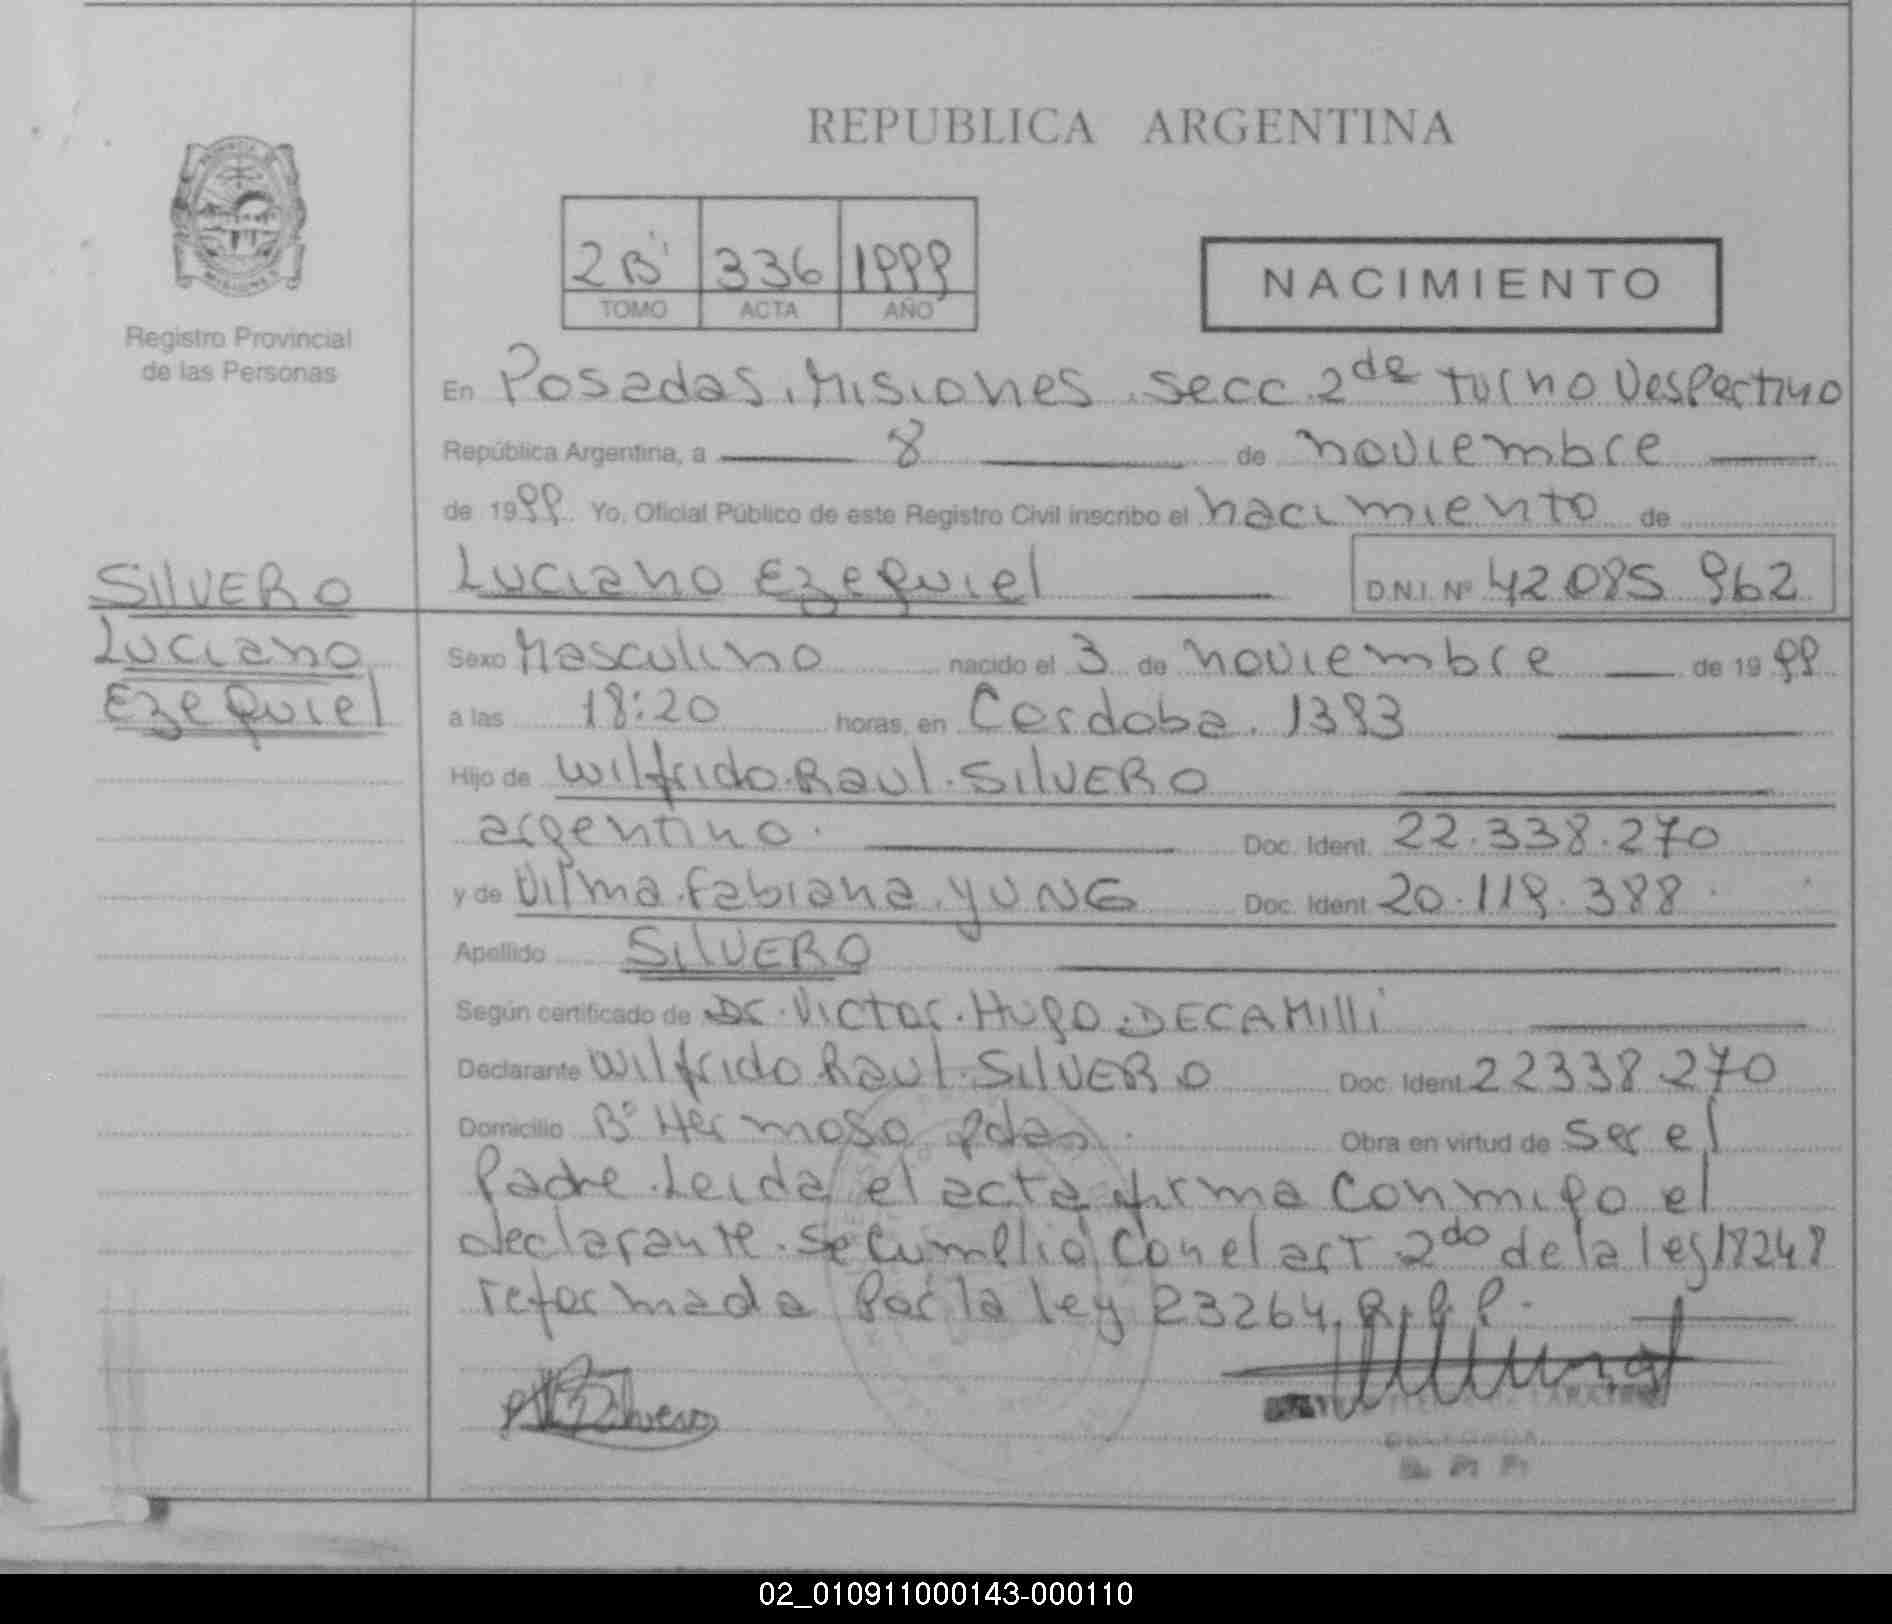 REPUBLICA ARGENTINA
2 B' 336 1999
TOMO ACTA AÑO
NACIMIENTO
Registro Provincial
de las Personas
En Posadas, Misiones. secc. 2da turno Vespertino
República Argentina, a 8 de noviembre
de 1999 Yo, Oficial Público de este Registro Civil inscribo el nacimiento de
Luciano Ezequiel D.N.I. Nº 42 085 962
SILVERO
Luciano
Ezequiel
Sexo Masculino nacido el 3 de noviembre de 1999
a las 18:20 horas, en Cordoba. 1393
Hijo de Wilfrido. Raul. SILVERO
argentino. Doc. Ident. 22.338.270
y de Vilma. Fabiana. YUNG Doc. Ident. 20.119.388
Apellido SILVERO
Según certificado de Dr. Victor. Hugo. DECAMILLI
Declarante Wilfrido Raul. SILVERO Doc. Ident. 22338.270
Domicilio Bº Hermoso pdas. Obra en virtud de ser el
Padre. Leida el acta firma conmigo el
declarante. Se cumplió con el art 2do de la ley 18248
reformada por la ley 23264.
DELEGADA
02_010911000143-000110